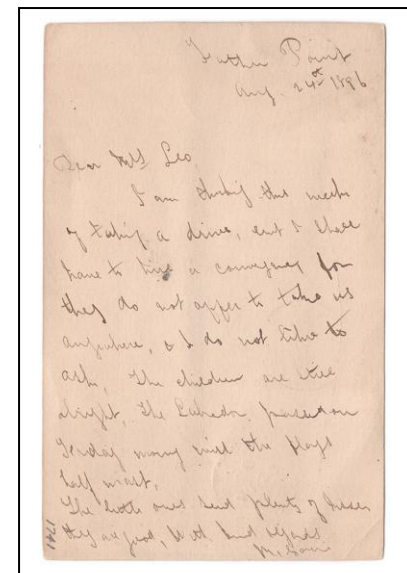 Father Point
Aug. 24th 1896
Dear Mrs Leo
I am thinking this week
of taking a drive, but I shall
have to hire a conveyance for
they do not offer to take us
anywhere, & I do not like to
ask, The children are still
alright, The Labrador passed on
morning with the flags
half mast,
The little ones send plenty of kisses
they are good, With kind regards
M.
1741